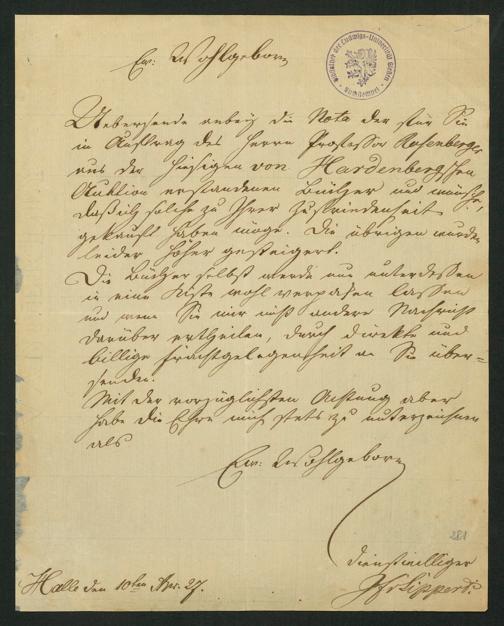 Ew: Wohlgeborn
Bibliothek der Ludwigs-Universität Gießen
Uebersende anbey die Nota der für Sie
im Auftrag des Herrn Professor Rosenberger
aus der hiesigen von Hardenbergschen
Auktion erstandenen Bücher und wünsche,
daß ich solche zu Ihrer Zufriedenheit
gekauft haben möge. Die übrigen wurden
leider höher gesteigert.
Die Bücher selbst werde nun unterdessen
in eine Kiste wohl verpaken lassen
und wenn Sie mir nicht andere Nachricht
darüber ertheilen, durch direkte und
billige Frachtgelegenheit an Sie über-
senden.
Mit der vorzüglichsten Achtung aber
habe die Ehre mich stets zu unterzeichnen
als
Ew: Wohlgeborn
281
dienstwilliger
Halle den 10ten Apr. 27. Lippert